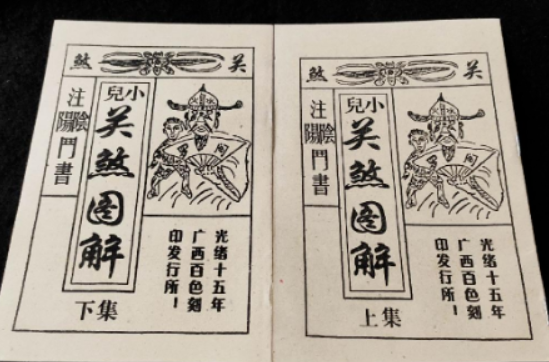 关煞
小兒
关煞图解
注陰陽門書
光绪十五年
广西百色刻
印发行所！
下集
关煞
小兒
关煞图解
注陰陽門書
光绪十五年
广西百色刻
印发行所！
上集